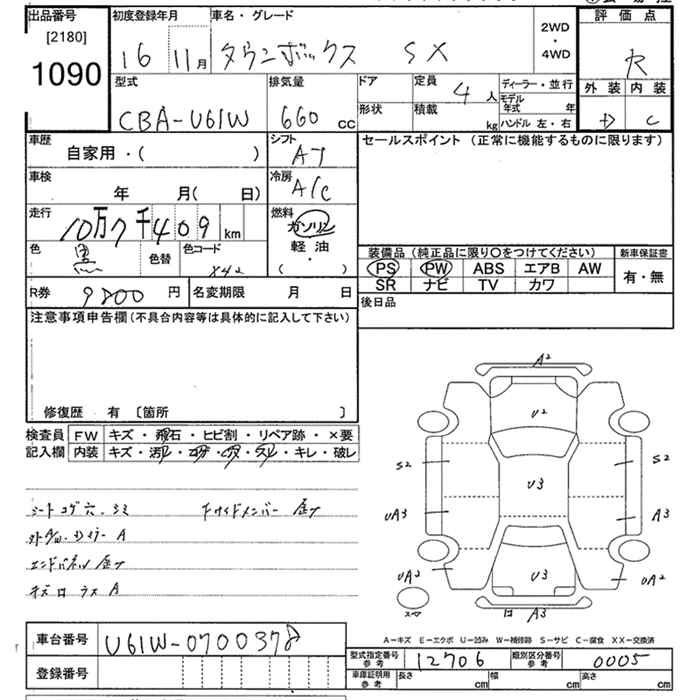 出品番号 初度登録年月 車名・グレード 2WD・4WD 評価点
[2180] 16 11月 タウンボックス SX R
1090
型式 排気量 ドア 定員 4人 ディーラー・並行 外装 内装
CBA-U61W 660cc 形状 積載 kg モデル年式 年 D C
ハンドル 左・右
車歴 シフト セールスポイント (正常に機能するものに限ります)
自家用・( ) AT
車検 冷房
年 月( 日) A/C
走行 燃料
10万7千409km ガソリン
色 黒 色替 色コード X42 軽油
・
( )
装備品 (純正品に限り〇をつけてください) 新車保証書
PS PW ABS エアB AW 有・無
SR ナビ TV カワ
R券 9800円 名変期限 月 日 後日品
注意事項申告欄(不具合内容等は具体的に記入して下さい)
修復歴 有 〔箇所 〕
検査員 FW キズ・飛石・ヒビ割・リペア跡・×要
記入欄 内装 キズ・汚れ・コゲ・穴・スレ・キレ・破レ
シートコゲ穴.シミ
A
エンドパネル
A
A2
U2
S2 S2
U3
UA3 A3
UA2 U3 UA2
A3
A-キズ E-エクボ U-凹み W-補修跡 S-サビ C-腐食 XX-交換済
車台番号 U61W-0700378
型式指定番号 参考 12706 類別区分番号 参考 0005
登録番号
車庫証明用 参考 長さ cm 幅 cm 高さ cm